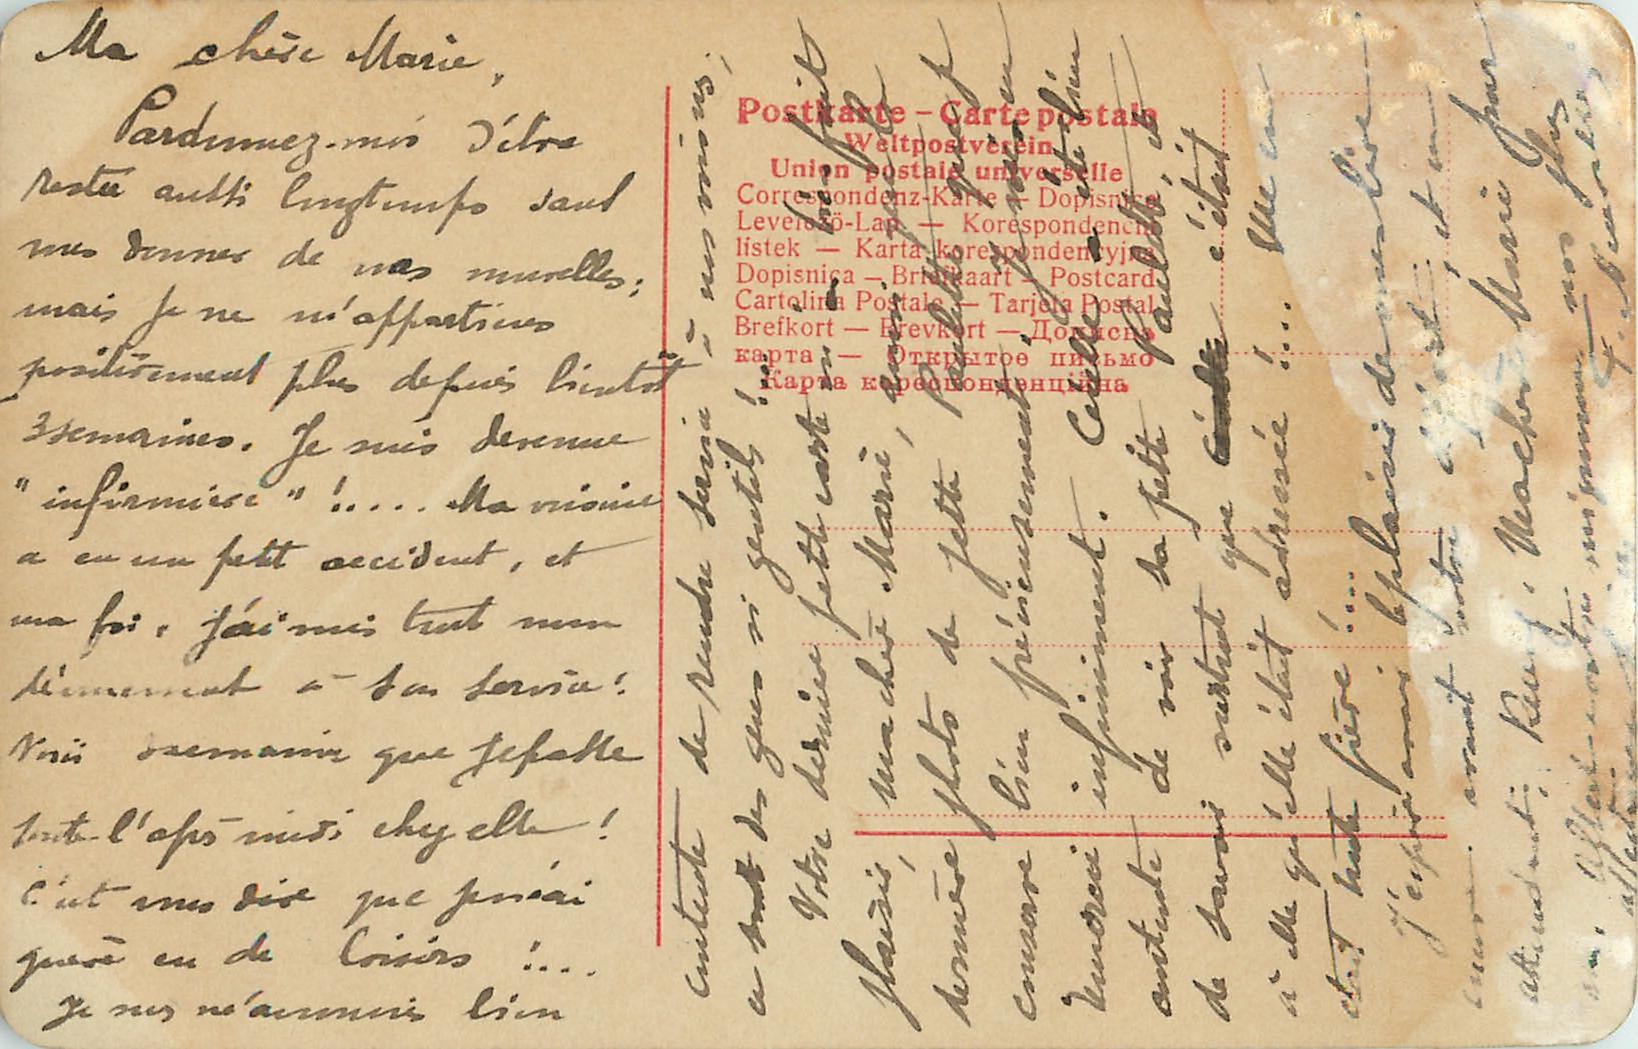 Ma chère Marie,
Pardonnez-moi d'être
restée aussi longtemps sans
vous donner de nos nouvelles;
mais je ne m'appartiens
positivement plus depuis bientôt
3 semaines. Je suis devenue
"infirmière" !.... Ma voisine
a eu un petit accident, et
ma foi, j'ai mis tout mon
dévouement à son service!
Voici semaine que je passe
toute l'après midi chez elle!
C'est vous dire que je n'ai
guère eu de loisirs !...
Je suis néanmoins bien
contente de rendre service à nos voisins;
ce sont des gens si gentils !...
Votre dernière petite carte m'a bien fait
plaisir, ma chère Marie, ainsi que la
dernière photo de petite Paulette que je
conserve bien précieusement; je vous en
remercie infiniment. Cécile a été bien
contente de voir sa petite Paulette et
de savoir surtout que c'était
à elle qu'elle était adressée !... Elle en
était toute fière !...
J'espère avoir le plaisir de vous lire
encore avant votre départ, et en
attendant, recevez, ma chère Marie, pour
nos plus
affectueux
Postkarte – Carte postale
Weltpostverein
Union postale universelle
Correspondenz-Karte — Dopisnice
Levelező-Lap — Korespondenční
lístek — Karta korespondencyjna
Dopisnica — Briefkaart — Postcard
Cartolina Postale — Tarjeta Postal
Brefkort — Brevkort — Дописна
карта — Открытое письмо
Карта кореспонденційна